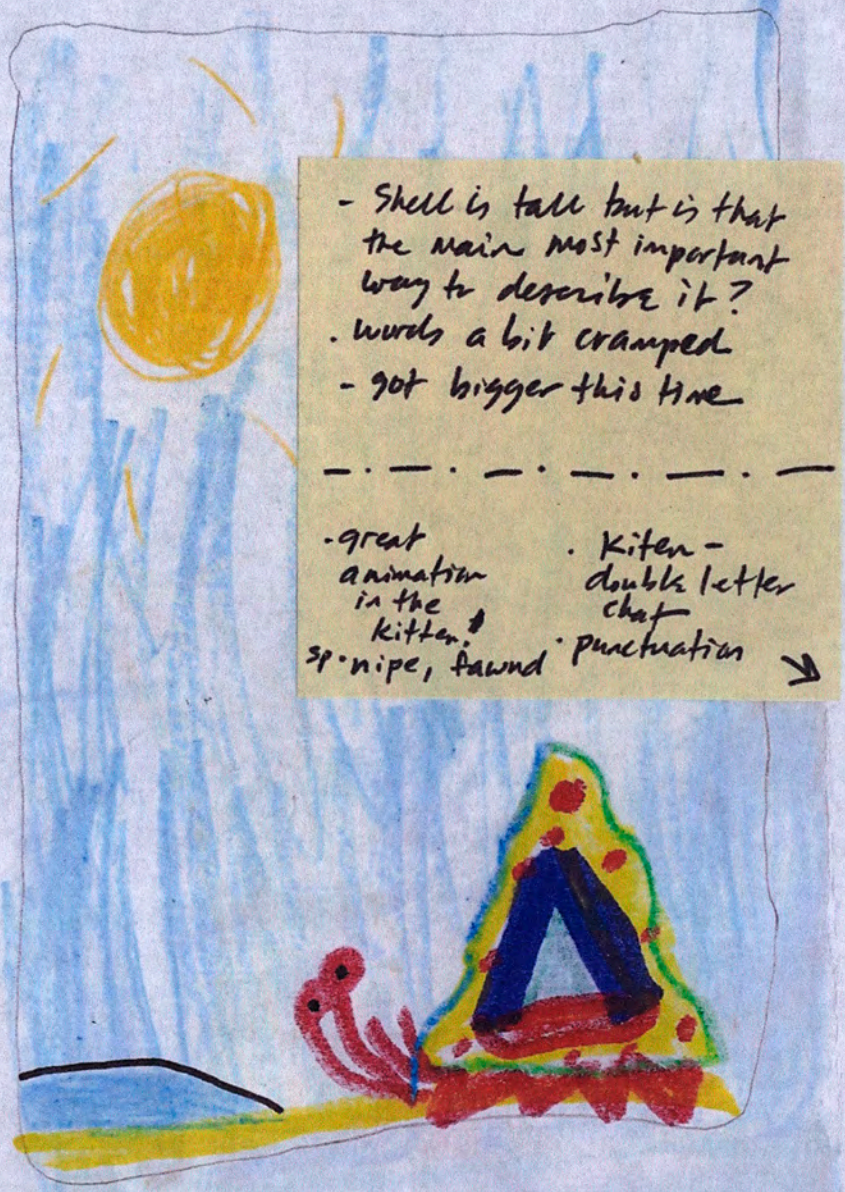 - Shell is tall but is that
the main most important
way to describe it?
. words a bit cramped
- got bigger this time
. great
animation
in the
kitten!
sp . nipe, fawnd
. Kiten -
double letter
chat
. punctuation